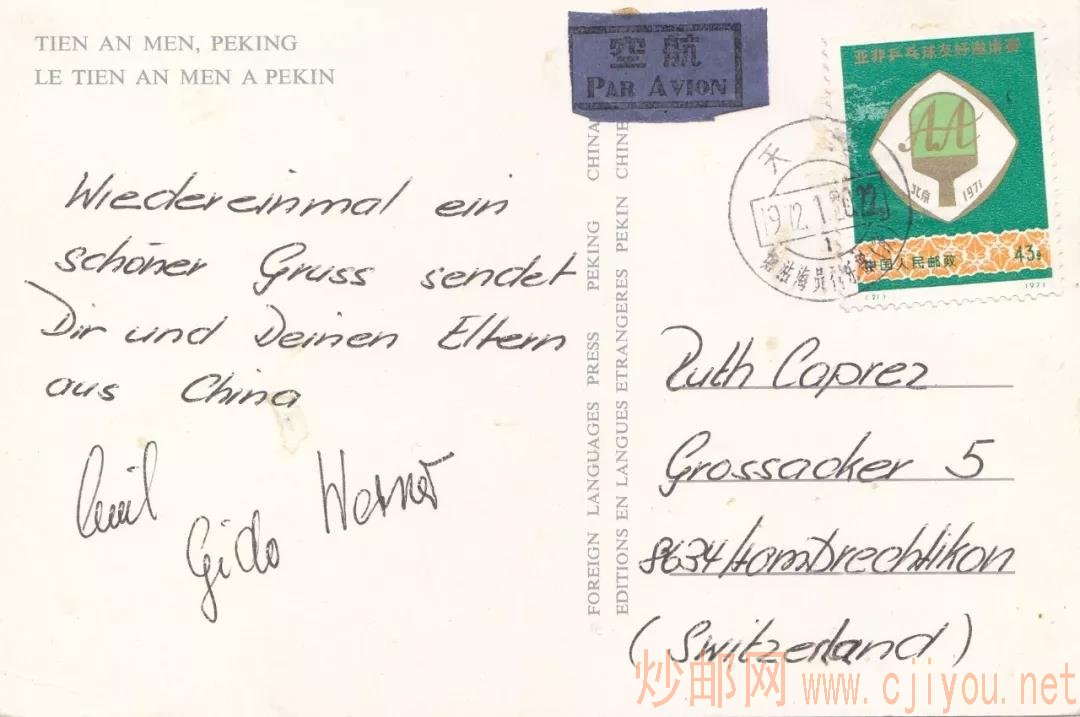 TIEN AN MEN, PEKING
LE TIEN AN MEN A PEKIN
Wiedereinmal ein
schöner Gruss sendet
Dir und Deinen Eltern
aus China
Emil
Gido Werner
FOREIGN LANGUAGES PRESS PEKING CHINA
EDITIONS EN LANGUES ETRANGERES PEKIN CHINE
空航
PAR AVION
亚非乒乓球友好邀请赛
AA
北京 1971
中国人民邮政 43分
(21) 1971
天
1
海员
Ruth Caprez
Grossacker 5
8634 Hombrechtikon
(Switzerland)
炒邮网 www.cjiyou.net